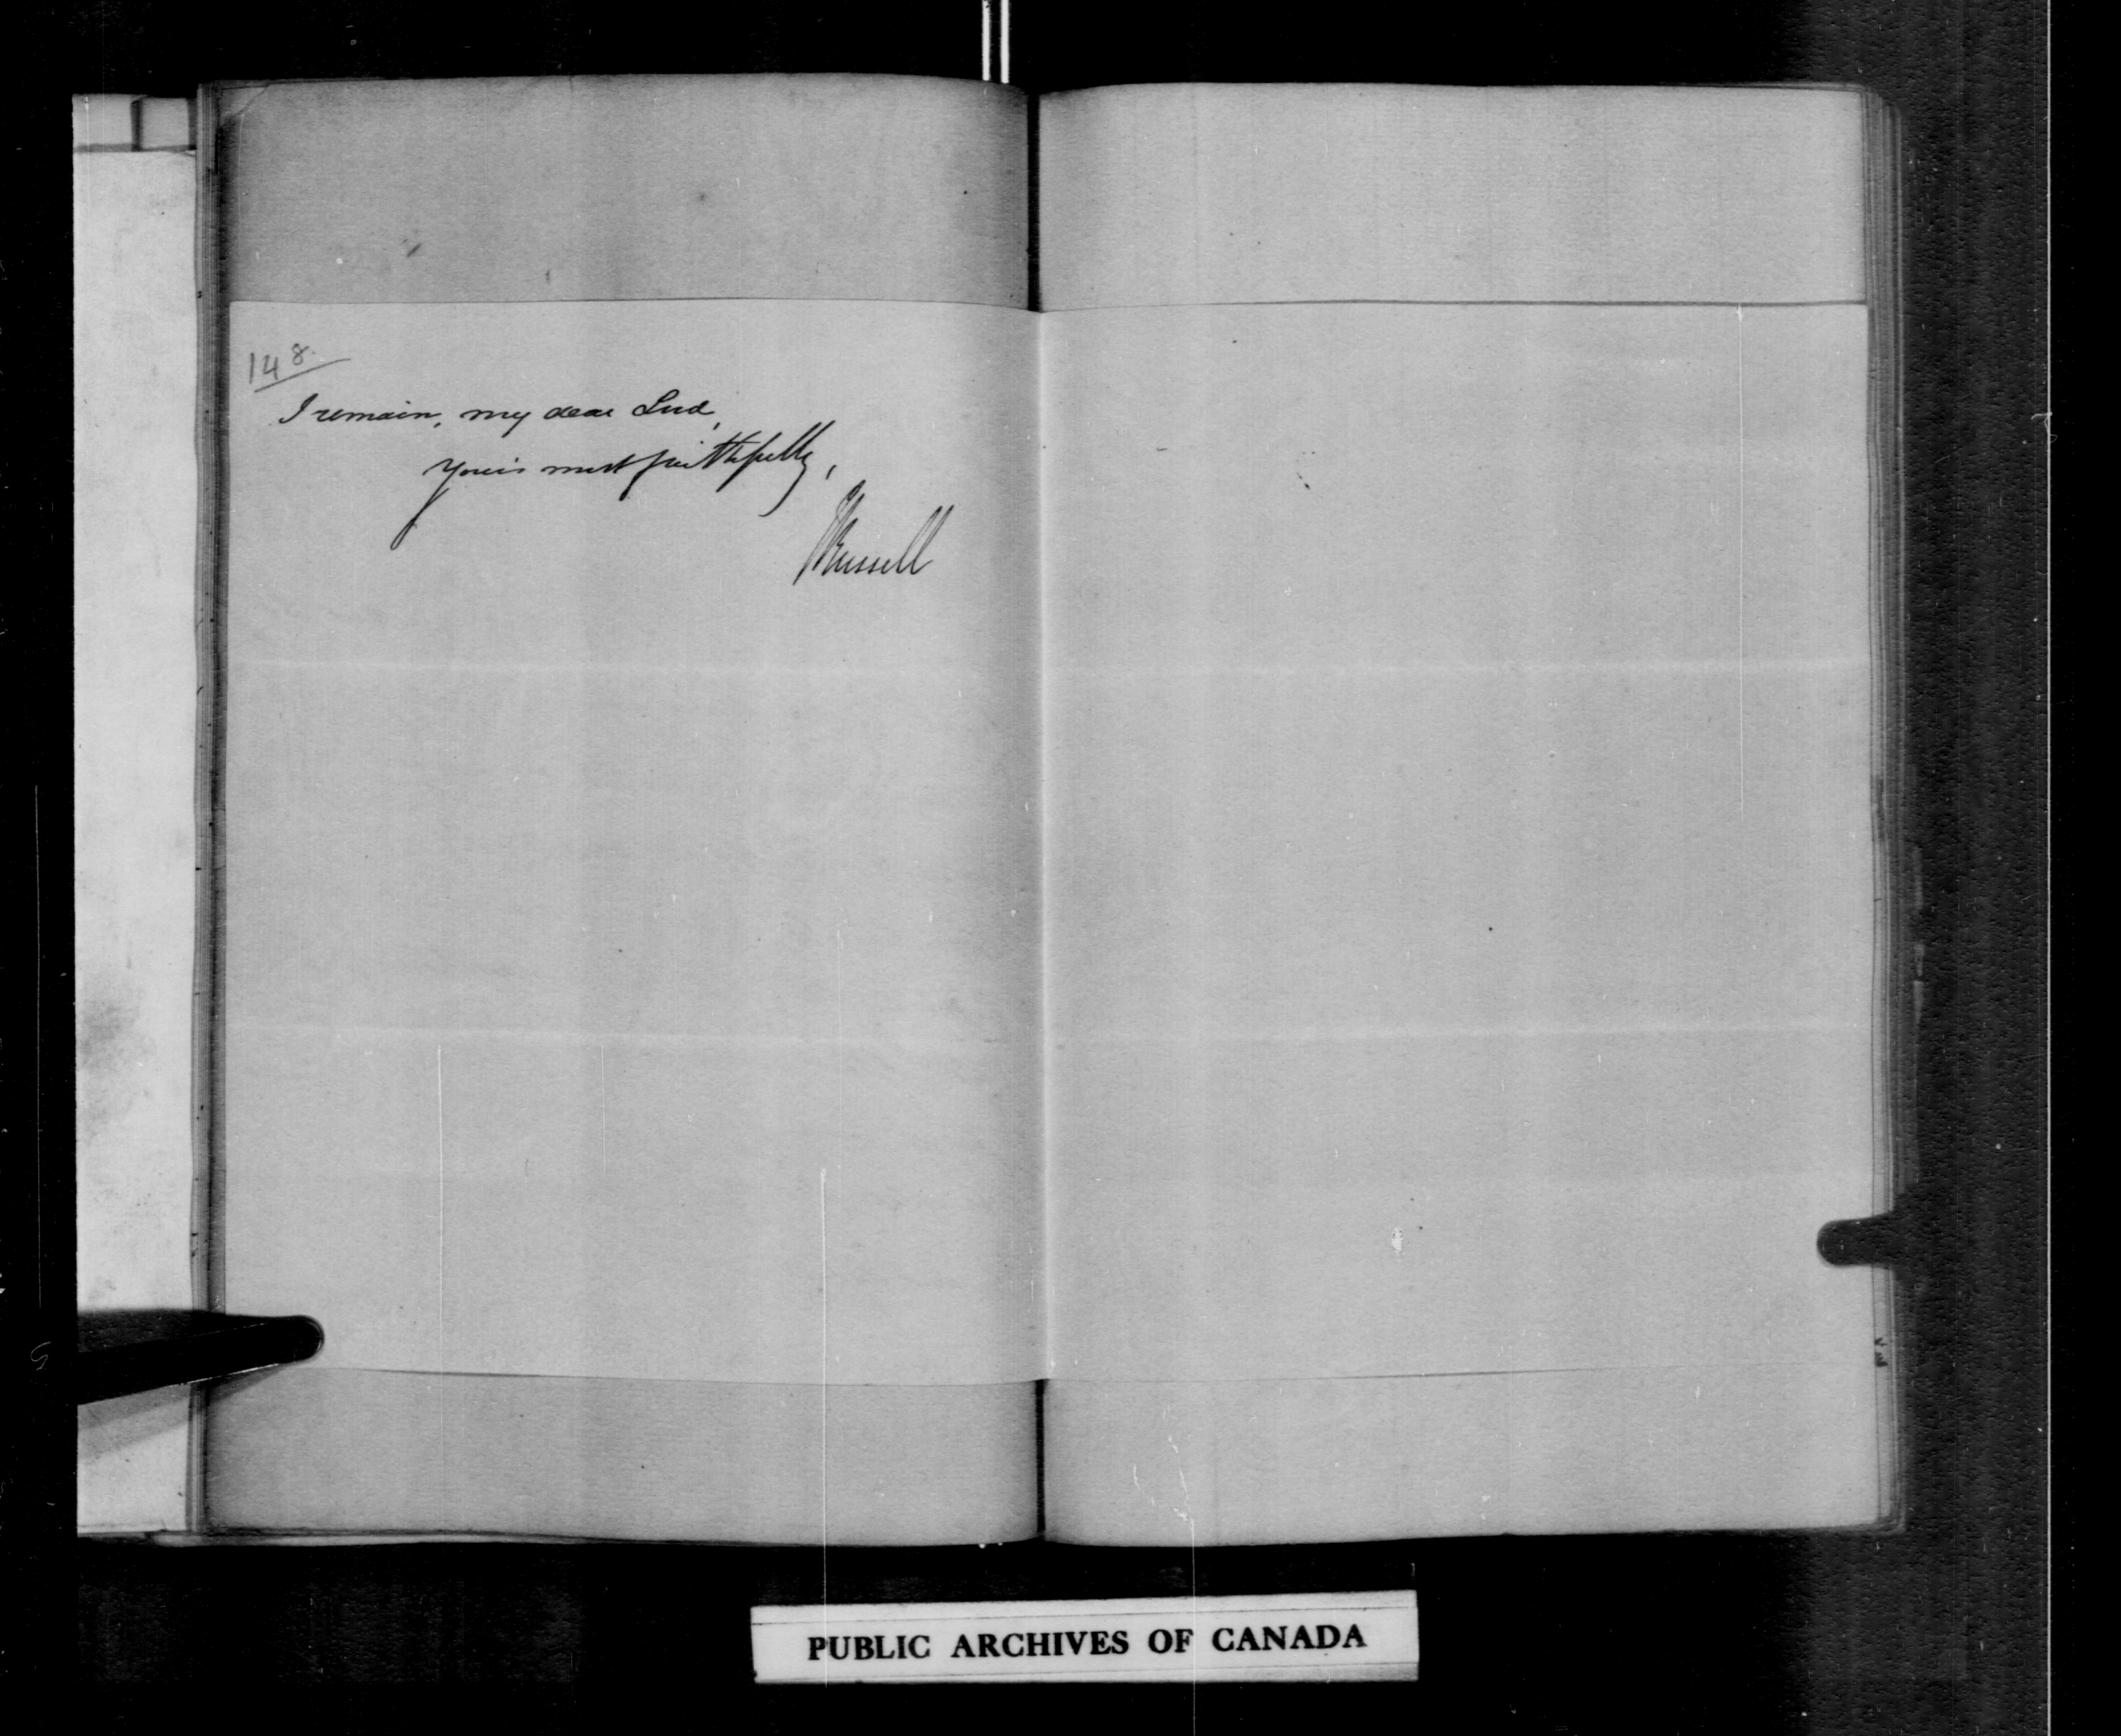 148.
I remain, my dear Lord,
Yours most faithfully,
J Russell
PUBLIC ARCHIVES OF CANADA